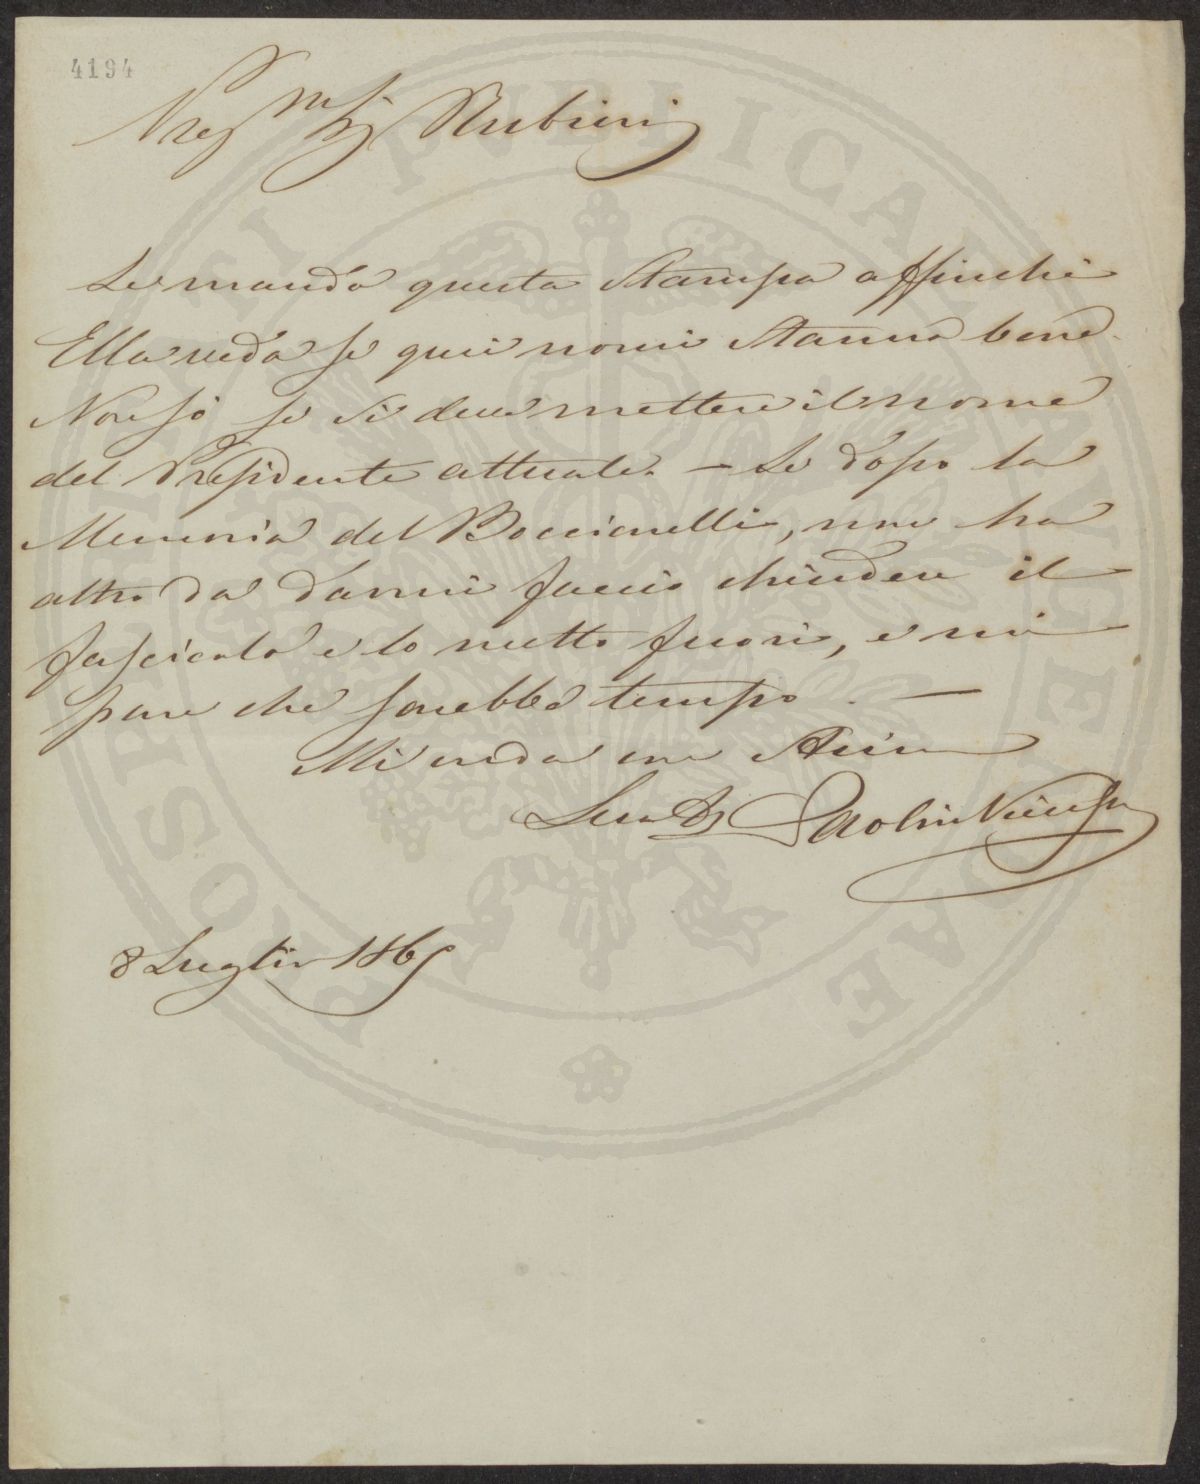 4194
Preg.mo Sig. Rubieri
Le mando questa Stampa affinchè
Ella veda se quei nomi stanno bene.
Non sò se si deve mettere il nome
del Presidente attuale. — Se dopo la
Memoria del Boccianelli, non ha
altro da darmi faccio chiudere il
fascicolo e lo metto fuori, e mi
pare che sarebbe tempo. —
Mi creda con stima
Suo D Paolin Vieusx
8 Luglio 1865
PROSPERITATI PUBLICAE AVGENDAE